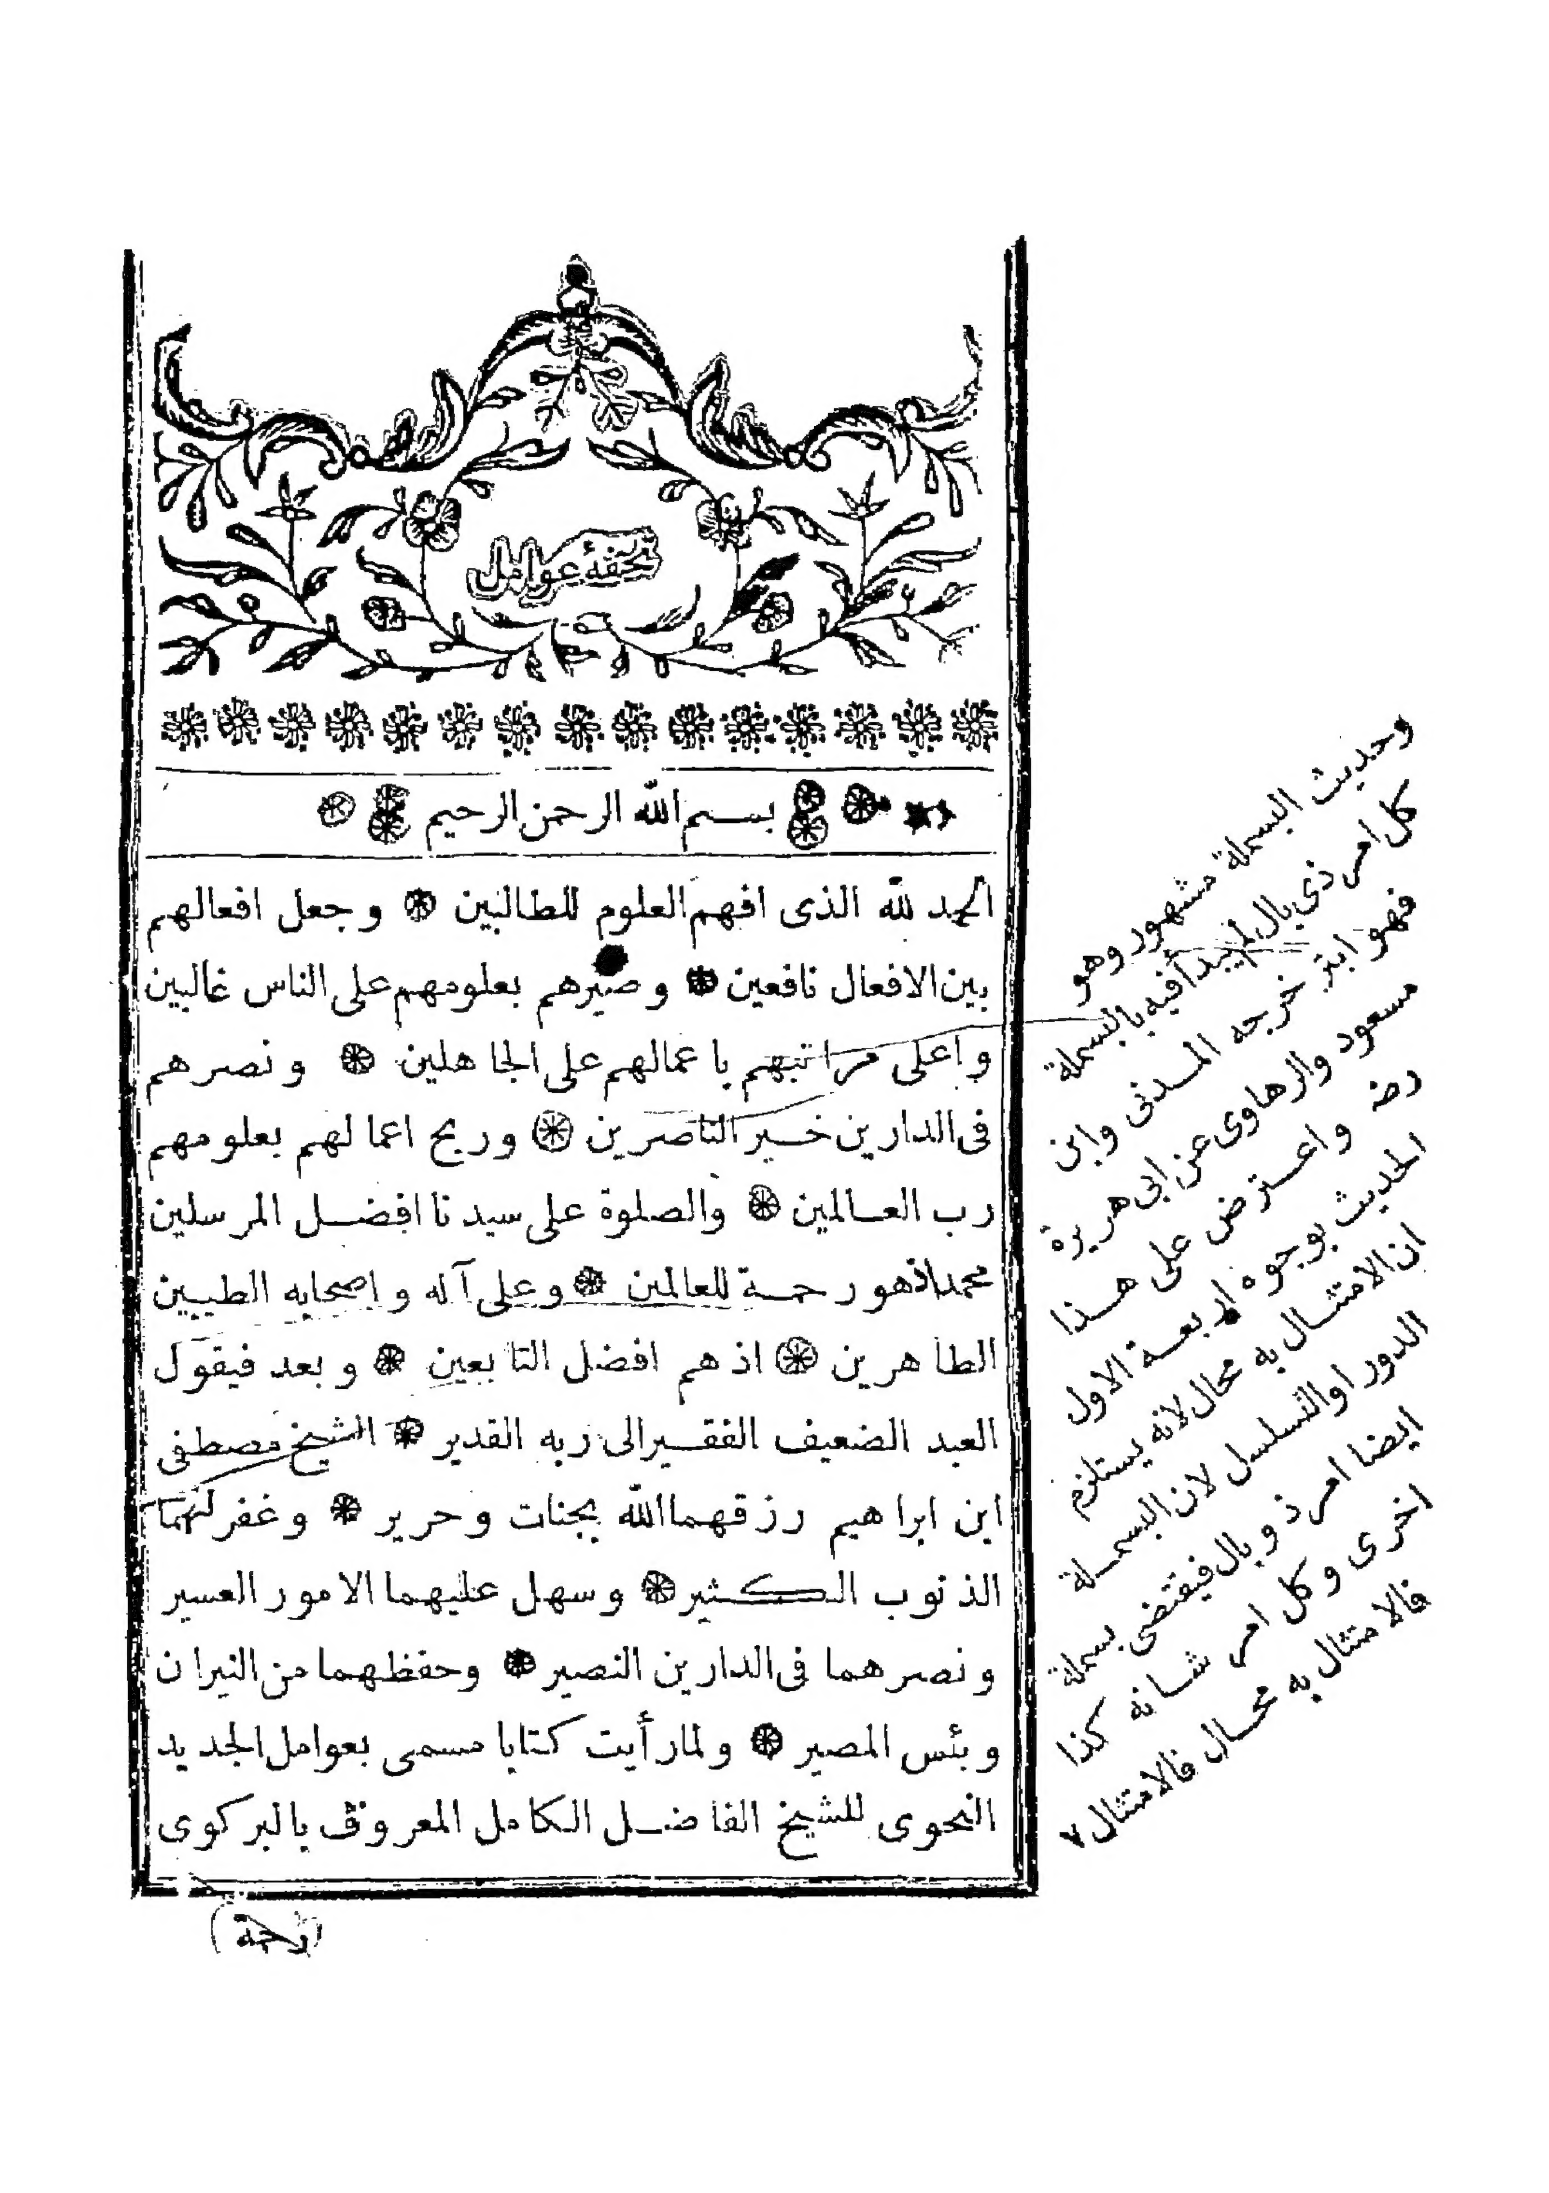 تحفۀ عوامل
بسم الله الرحمن الرحيم
الحمد لله الذى افهم العلوم للطالبين وجعل افعالهم
بين الافعال نافعين وصيرهم بعلومهم على الناس غالبين
واعلى مراتبهم باعمالهم على الجاهلين ونصرهم
فى الدارين خير الناصرين وربح اعمالهم بعلومهم
رب العالمين والصلوة على سيدنا افضل المرسلين
محمد اذهو رحمة للعالمين وعلى آله واصحابه الطيبين
الطاهرين اذهم افضل التابعين وبعد فيقول
العبد الضعيف الفقير الى ربه القدير الشيخ مصطفى
ابن ابراهيم رزقهما الله بجنات وحرير وغفر لهما
الذنوب الكثير وسهل عليهما الامور العسير
ونصرهما فى الدارين النصير وحفظهما من النيران
وبئس المصير ولما رأيت كتابا مسمى بعوامل الجديد
النحوى للشيخ الفاضل الكامل المعروف بالبركوى
وحديث البسملة مشهور وهو
كل امر ذى بال لم يبدأ فيه بالبسملة
فهو ابتر خرجه المدنى وابن
مسعود والرهاوى عن ابى هريرة
رضه واعترض على هذا
الحديث بوجوه اربعة الاول
ان الامتثال به محال لانه يستلزم
الدور او التسلسل لان البسملة
ايضا امر ذو بال فيقتضى بسملة
اخرى وكل امر شانه كذا
فالامتثال به محال فالامتثال ٧